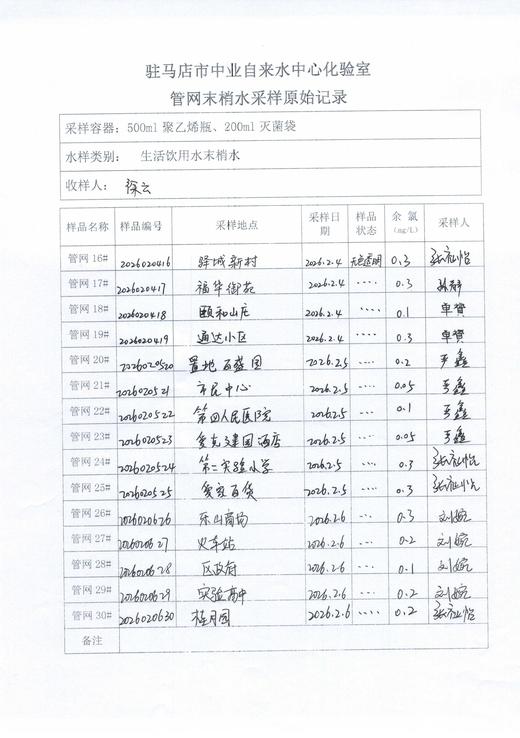 驻马店市中业自来水中心化验室
管网末梢水采样原始记录
采样容器：500ml 聚乙烯瓶、200ml 灭菌袋
水样类别： 生活饮用水末梢水
收样人： 徐云
样品名称 样品编号 采样地点 采样日期 样品状态 余氯（mg/L） 采样人
管网 16# 2026020416 驿城新村 2026.2.4 无色透明 0.3
管网 17# 2026020417 福华御苑 2026.2.4 ···· 0.3
管网 18# 2026020418 颐和山庄 2026.2.4 ···· 0.1
管网 19# 2026020419 通达小区 2026.2.4 ···· 0.3
管网 20# 2026020520 置地百盛园 2026.2.5 ··· 0.2
管网 21# 2026020521 市民中心 2026.2.5 ···· 0.05
管网 22# 2026020522 第四人民医院 2026.2.5 ··· 0.1
管网 23# 2026020523 爱克建国酒店 2026.2.5 ···· 0.05
管网 24# 2026020524 第二实验小学 2026.2.5 ···· 0.3
管网 25# 2026020525 爱家百货 2026.2.5 ··· 0.3
管网 26# 2026020626 乐山商场 2026.2.6 ··· 0.3 刘婉
管网 27# 2026020627 火车站 2026.2.6 ··· 0.2 刘婉
管网 28# 2026020628 区政府 2026.2.6 ··· 0.1 刘婉
管网 29# 2026020629 实验高中 2026.2.6 ···· 0.2 刘婉
管网 30# 2026020630 桂月园 2026.2.6 ···· 0.2
备注